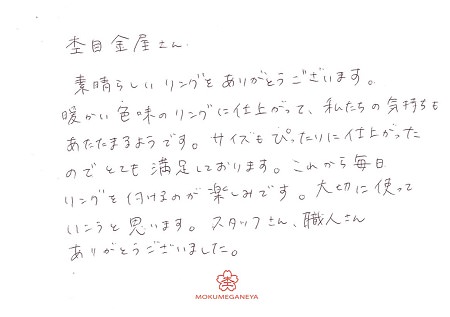 杢目金屋さん
素晴らしいリングをありがとうございます。
暖かい色味のリングに仕上がって、私たちの気持ちも
あたたまるようです。サイズもぴったりに仕上がった
のでとても満足しております。これから毎日
リングを付けるのが楽しみです。大切に使って
いこうと思います。スタッフさん、職人さん
ありがとうございました。
杢
MOKUMEGANEYA